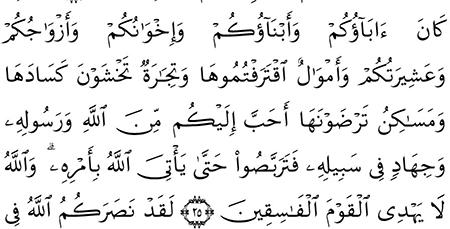 كَانَ ءَابَآؤُكُمْ وَأَبْنَآؤُكُمْ وَإِخْوَٰنُكُمْ وَأَزْوَٰجُكُمْ
وَعَشِيرَتُكُمْ وَأَمْوَٰلٌ ٱقْتَرَفْتُمُوهَا وَتِجَٰرَةٌ تَخْشَوْنَ كَسَادَهَا
وَمَسَٰكِنُ تَرْضَوْنَهَا أَحَبَّ إِلَيْكُم مِّنَ ٱللَّهِ وَرَسُولِهِۦ
وَجِهَادٍ فِى سَبِيلِهِۦ فَتَرَبَّصُوا۟ حَتَّىٰ يَأْتِىَ ٱللَّهُ بِأَمْرِهِۦ ۗ وَٱللَّهُ
لَا يَهْدِى ٱلْقَوْمَ ٱلْفَٰسِقِينَ ٢٥ لَقَدْ نَصَرَكُمُ ٱللَّهُ فِى